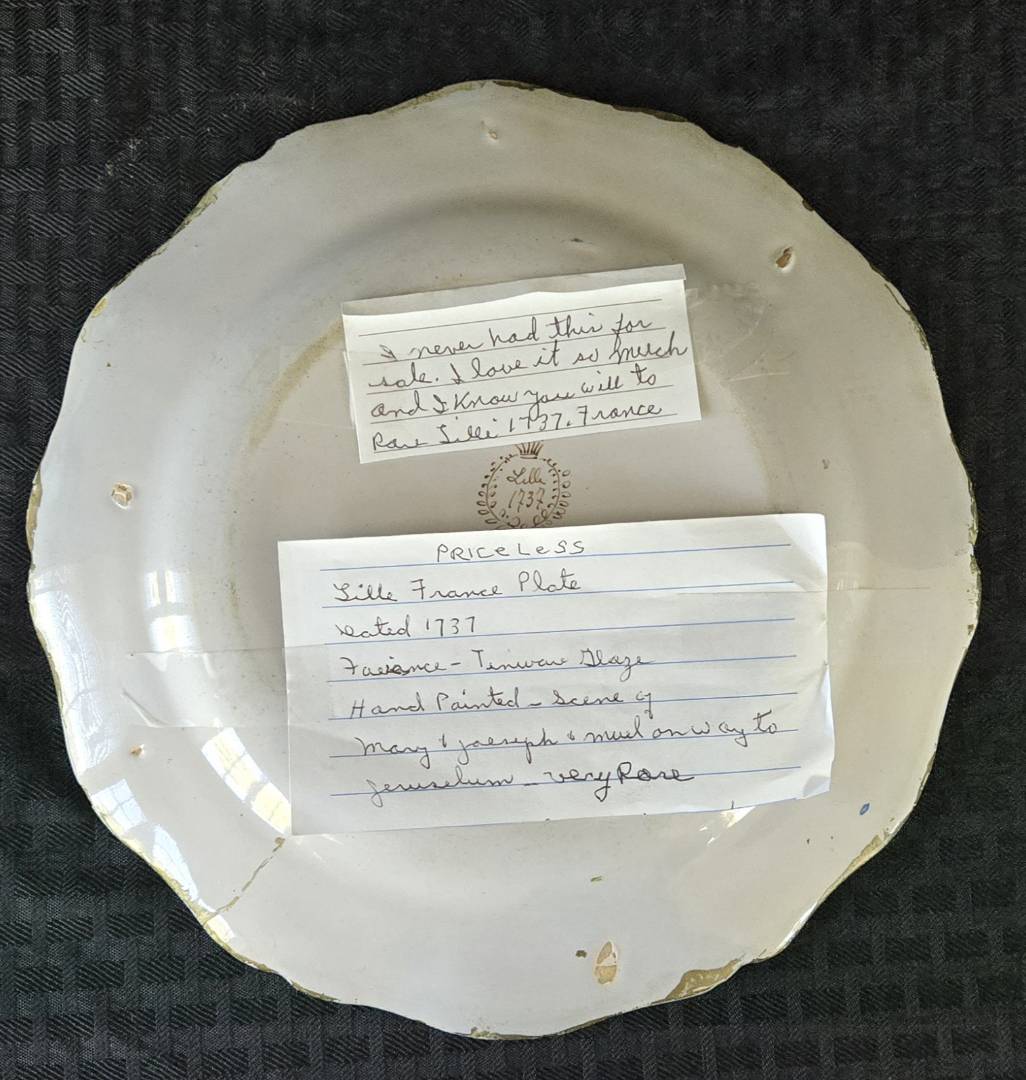 I never had this for
sale. I love it so much
and I Know you will to
Rare Lille 1737. France
Lille
1737
PRICELESS
Lille France Plate
Dated 1737
Faeiance - Tinware Glaze
Hand Painted - Scene of
Mary & Joeseph & muel on way to
Jeruselum - very Rare